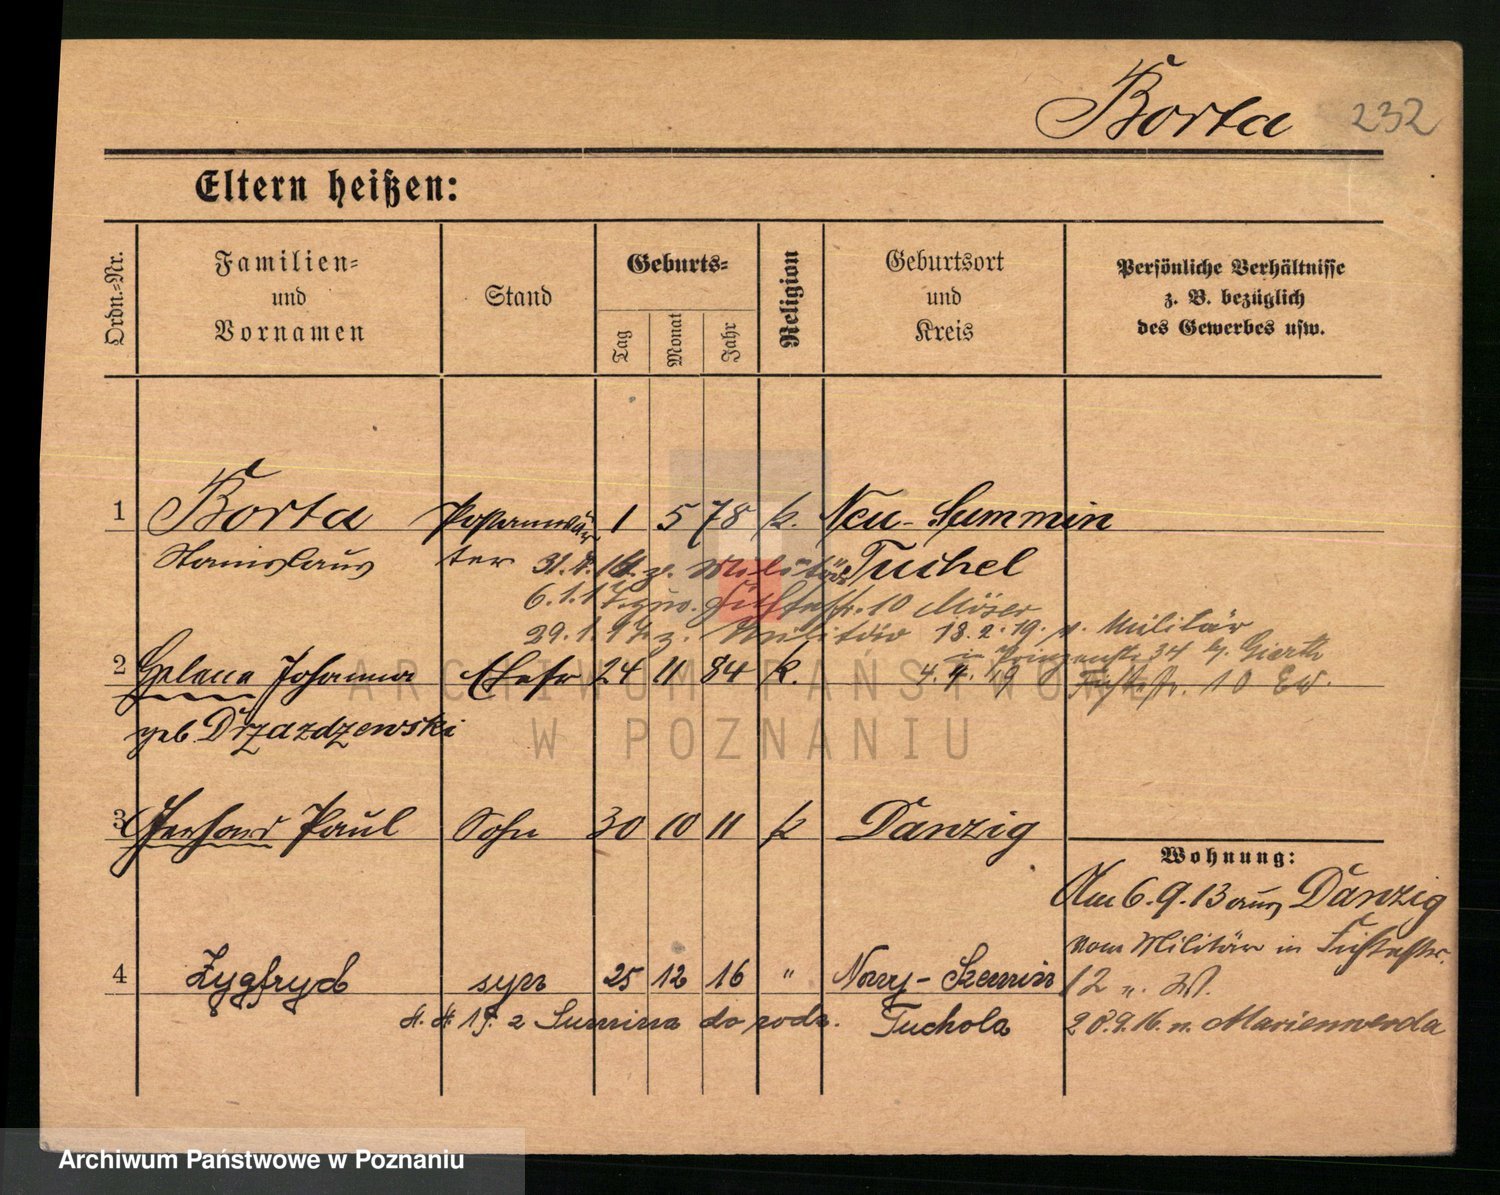 Borta 232
Eltern heißen:
Ordn.-Nr.
Familien-
und
Vornamen
Stand
Geburts-
Tag
Monat
Jahr
Religion
Geburtsort
und
Kreis
Persönliche Verhältnisse
z. B. bezüglich
des Gewerbes usw.
1 Borta Postanwär 1 5 78 k. Neu-Summin
Stanislaus ter z. Militär Tuchel
6.1.1 10 Möser
29.1. z. Militär 18.2.19. v. Militär
34
2 Helene Johanna Ehefr 24 11 84 k. 4.4.19 10
geb Drzazdzewski
3 Gerhard Paul Sohn 30 10 11 k Danzig
Wohnung:
Am 6.9.13 aus Danzig
vom Militär in
12
4 Zygfryd syn 25 12 16 " Nowy-
Sumina do rodz. Tuchola
28.9.16. n. Marienwerda
ARCHIWUM PAŃSTWOWE
W POZNANIU
Archiwum Państwowe w Poznaniu